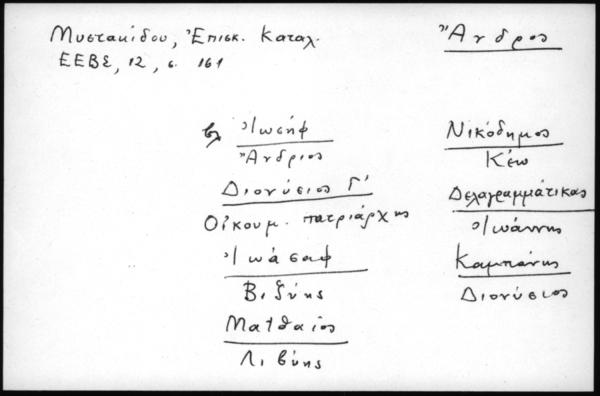 Μυστακίδου, Ἐπισκ. Καταλ.
ΕΕΒΣ, 12, σ. 161
Ἄνδρος
βλ Ἰωσήφ
Ἄνδριος
Διονύσιος Γ'
Οἰκουμ. πατριάρχης
Ἰωάσαφ
Βιζύης
Ματθαῖος
Λιβύης
Νικόδημος
Κέω
Δελαγραμμάτικας
Ἰωάννης
Καμπάνης
Διονύσιος